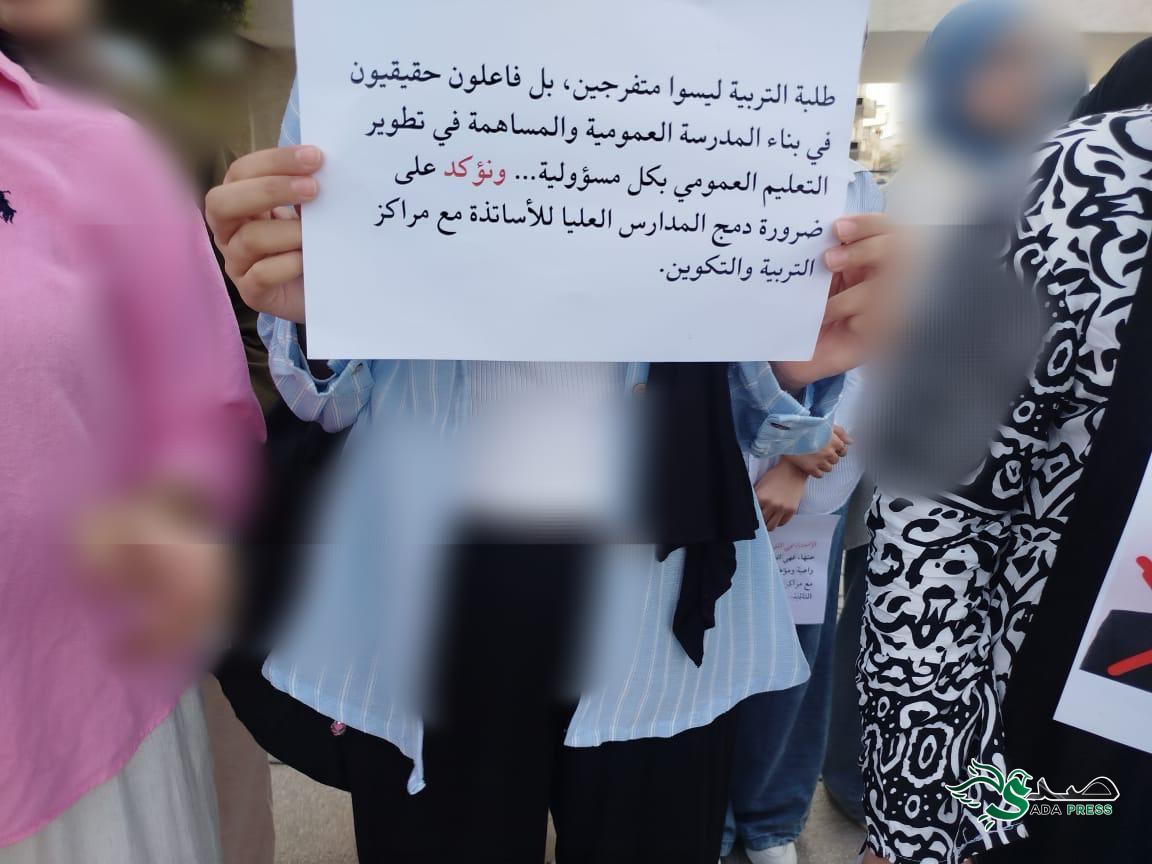 طلبة التربية ليسوا متفرجين، بل فاعلون حقيقيون
في بناء المدرسة العمومية والمساهمة في تطوير
التعليم العمومي بكل مسؤولية... ونؤكد على
ضرورة دمج المدارس العليا للأساتذة مع مراكز
التربية والتكوين.
مع مراكز
صدى
SADA PRESS